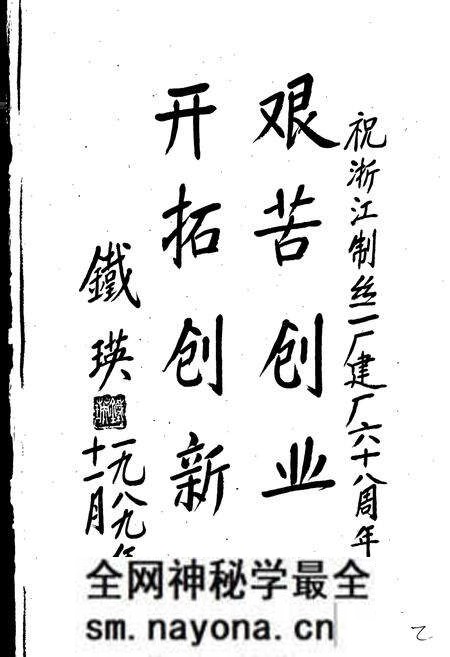 祝浙江制丝一厂建厂六十八周年
艰苦创业
开拓创新
鐵瑛
一九八九年
十一月
全网神秘学最全
sm.nayona.cn